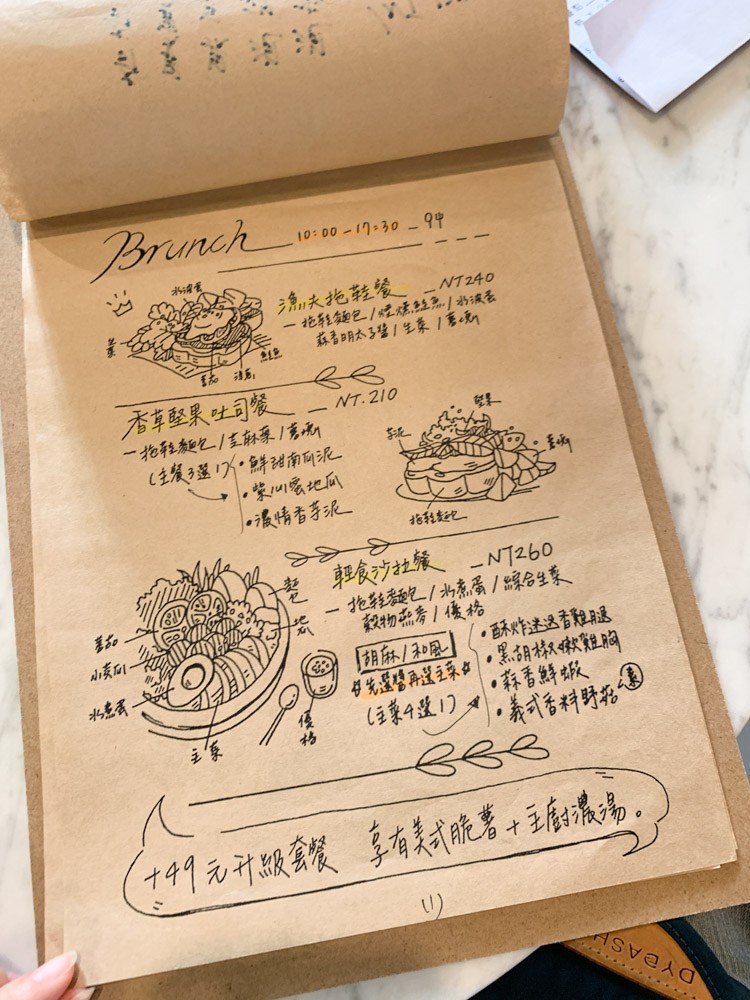 Brunch 10:00-17:30
水波蛋
漁夫拖鞋餐 - NT240
- 拖鞋麵包 / 煙燻鮭魚 / 水波蛋
蒜香明太子醬 / 生菜 / 薯嗎
鮭魚
番茄
香草堅果吐司餐 - NT.210
- 拖鞋麵包 / 芝麻葉 / 薯嗎
(主餐3選1)
• 鮮甜南瓜泥
• 紫心蜜地瓜
• 濃情香芋泥
堅果
芋泥
拖鞋麵包
輕食沙拉餐 - NT260
- 拖鞋麵包 / 水煮蛋 / 綜合生菜
穀物燕麥 / 優格
胡麻 / 和風
先選醬再選主菜
(主菜4選1)
• 酥炸迷迭香雞腿
• 黑胡椒嫩雞胸
• 蒜香鮮蝦
• 義式香料野菇 素
麵包
地瓜
番茄
小黃瓜
水煮蛋
主菜
優格
+49元升級套餐 享有美式脆薯+主廚濃湯。
(1)
DYDASH